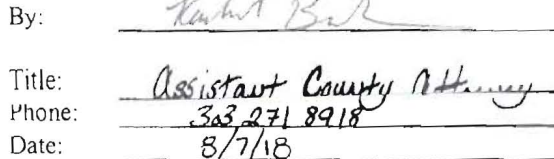 By:
Title: Assistant County Attorney
Phone: 303 271 8918
Date: 8/7/18